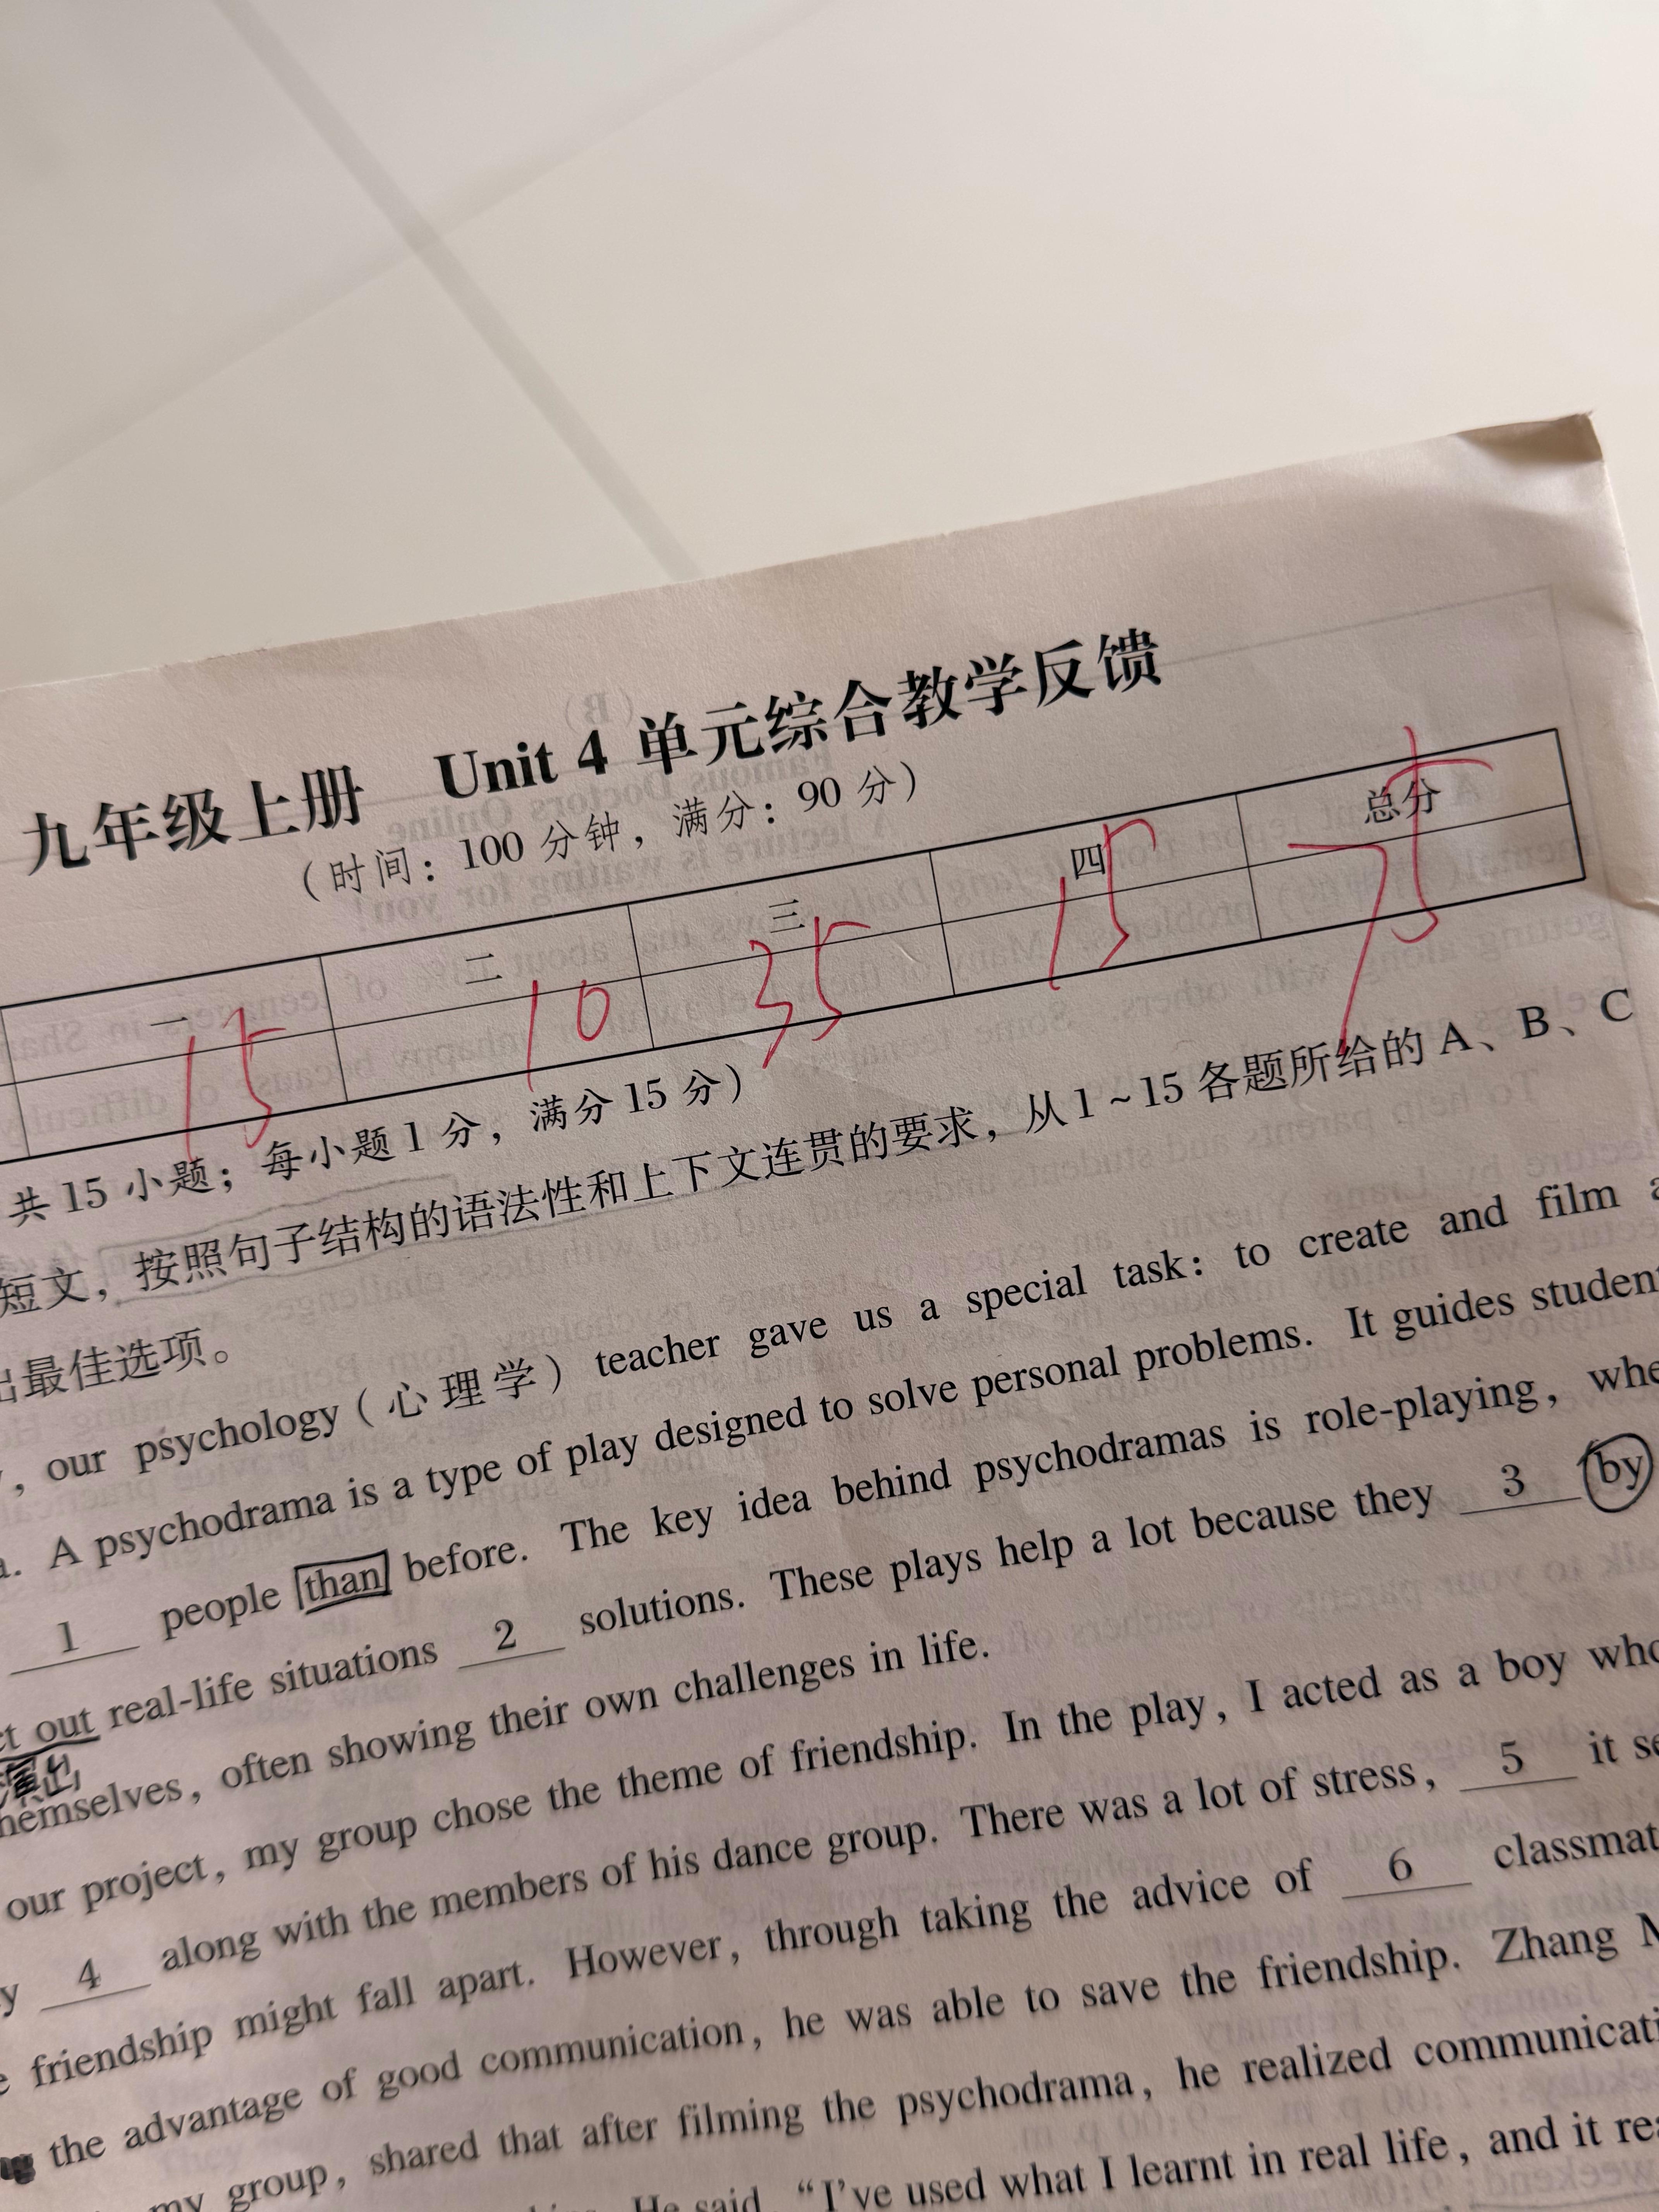 九年级上册 Unit 4 单元综合教学反馈
(时间：100 分钟，满分：90 分)
一 二 三 四 总分
15 10 35 15 75
共 15 小题；每小题 1 分，满分 15 分)
短文，按照句子结构的语法性和上下文连贯的要求，从 1 ~ 15 各题所给的 A、B、C
出最佳选项。
, our psychology(心理学) teacher gave us a special task: to create and film a
. A psychodrama is a type of play designed to solve personal problems. It guides student
1 people than before. The key idea behind psychodramas is role-playing, whe
ct out real-life situations 2 solutions. These plays help a lot because they 3 by
演出
hemselves, often showing their own challenges in life.
our project, my group chose the theme of friendship. In the play, I acted as a boy who
y 4 along with the members of his dance group. There was a lot of stress, 5 it se
e friendship might fall apart. However, through taking the advice of 6 classmat
the advantage of good communication, he was able to save the friendship. Zhang M
my group, shared that after filming the psychodrama, he realized communicati
He said, “I've used what I learnt in real life, and it rea